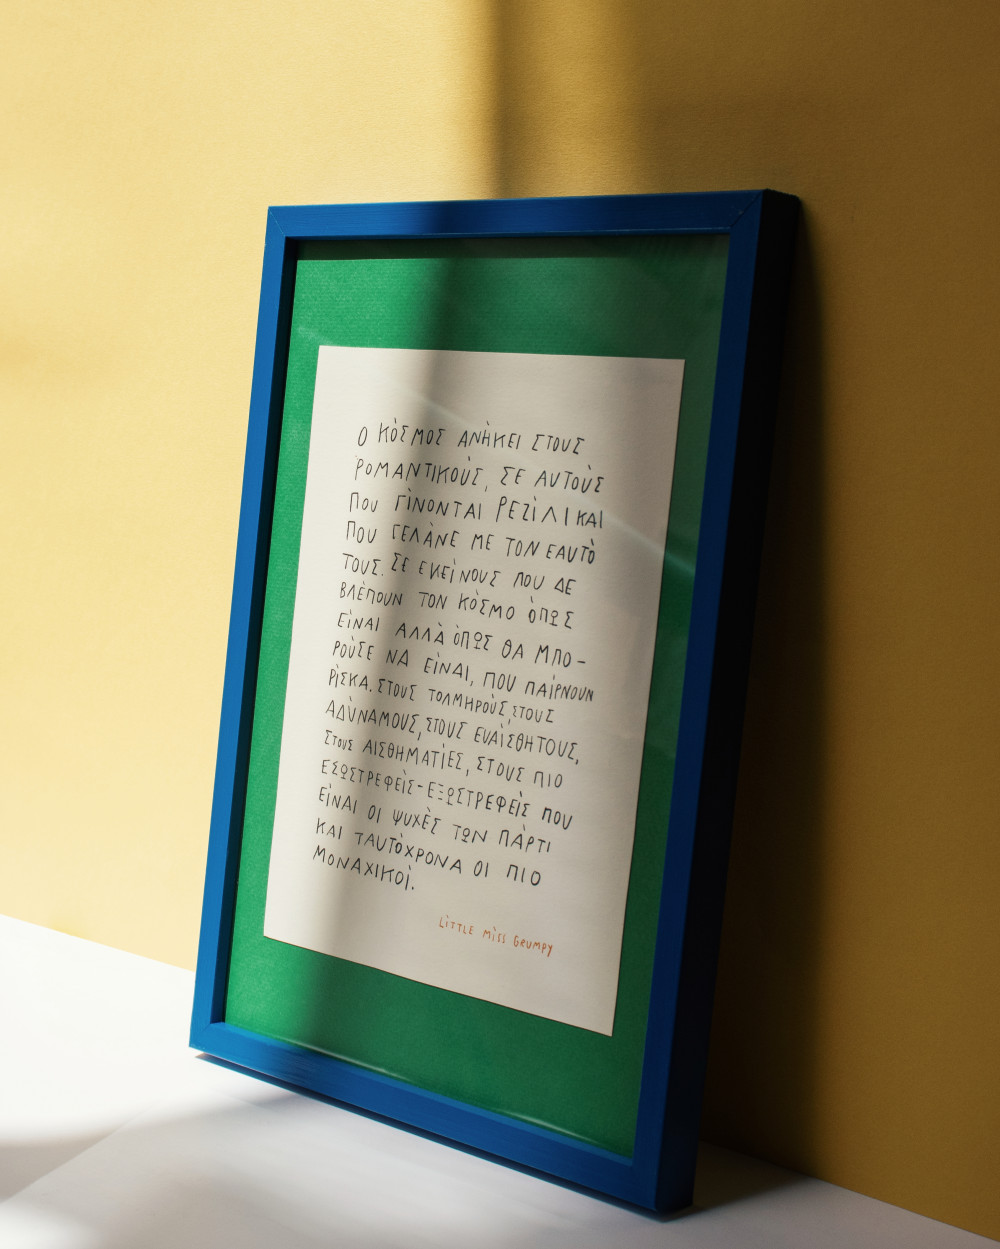 Ο ΚΌΣΜΟΣ ΑΝΉΚΕΙ ΣΤΟΥΣ
ΡΟΜΑΝΤΙΚΟΎΣ, ΣΕ ΑΥΤΟΎΣ
ΠΟΥ ΓΊΝΟΝΤΑΙ ΡΕΖΊΛΙ ΚΑΙ
ΠΟΥ ΓΕΛΆΝΕ ΜΕ ΤΟΝ ΕΑΥΤΌ
ΤΟΥΣ. ΣΕ ΕΚΕΊΝΟΥΣ ΠΟΥ ΔΕ
ΒΛΈΠΟΥΝ ΤΟΝ ΚΌΣΜΟ ΌΠΩΣ
ΕΊΝΑΙ ΑΛΛΆ ΌΠΩΣ ΘΑ ΜΠΟ-
ΡΟΎΣΕ ΝΑ ΕΊΝΑΙ, ΠΟΥ ΠΑΊΡΝΟΥΝ
ΡΊΣΚΑ. ΣΤΟΥΣ ΤΟΛΜΗΡΟΎΣ, ΣΤΟΥΣ
ΑΔΎΝΑΜΟΥΣ, ΣΤΟΥΣ ΕΥΑΊΣΘΗΤΟΥΣ,
ΣΤΟΥΣ ΑΙΣΘΗΜΑΤΊΕΣ, ΣΤΟΥΣ ΠΙΟ
ΕΣΩΣΤΡΕΦΕΊΣ-ΕΞΩΣΤΡΕΦΕΊΣ ΠΟΥ
ΕΊΝΑΙ ΟΙ ΨΥΧΈΣ ΤΩΝ ΠΆΡΤΙ
ΚΑΙ ΤΑΥΤΌΧΡΟΝΑ ΟΙ ΠΙΟ
ΜΟΝΑΧΙΚΟΊ.
LITTLE MISS GRUMPY